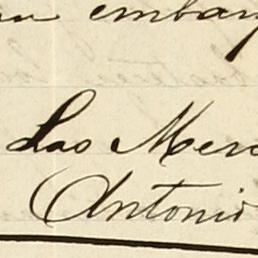 embar
Las Merc
Antonio